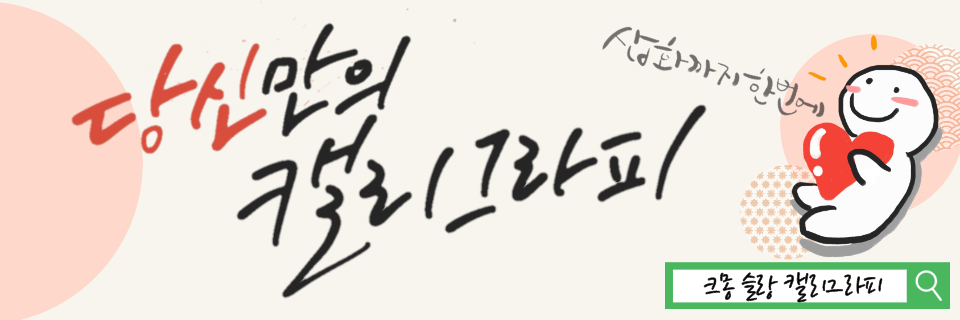 당신만의
캘리그라피
삽화까지 한번에
크몽 슬랑 캘리그라피